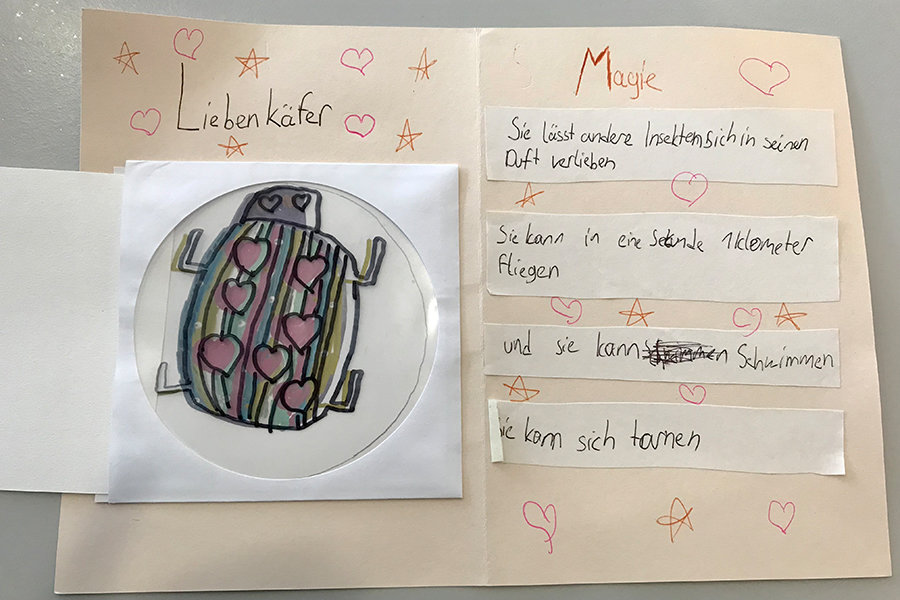 Liebenkäfer
Magie
Sie lässt andere Insekten sich in seinen
Duft verlieben
Sie kann in eine Sekunde 1 kilometer
fliegen
und sie kann Schwimmen
Sie kann sich tarnen